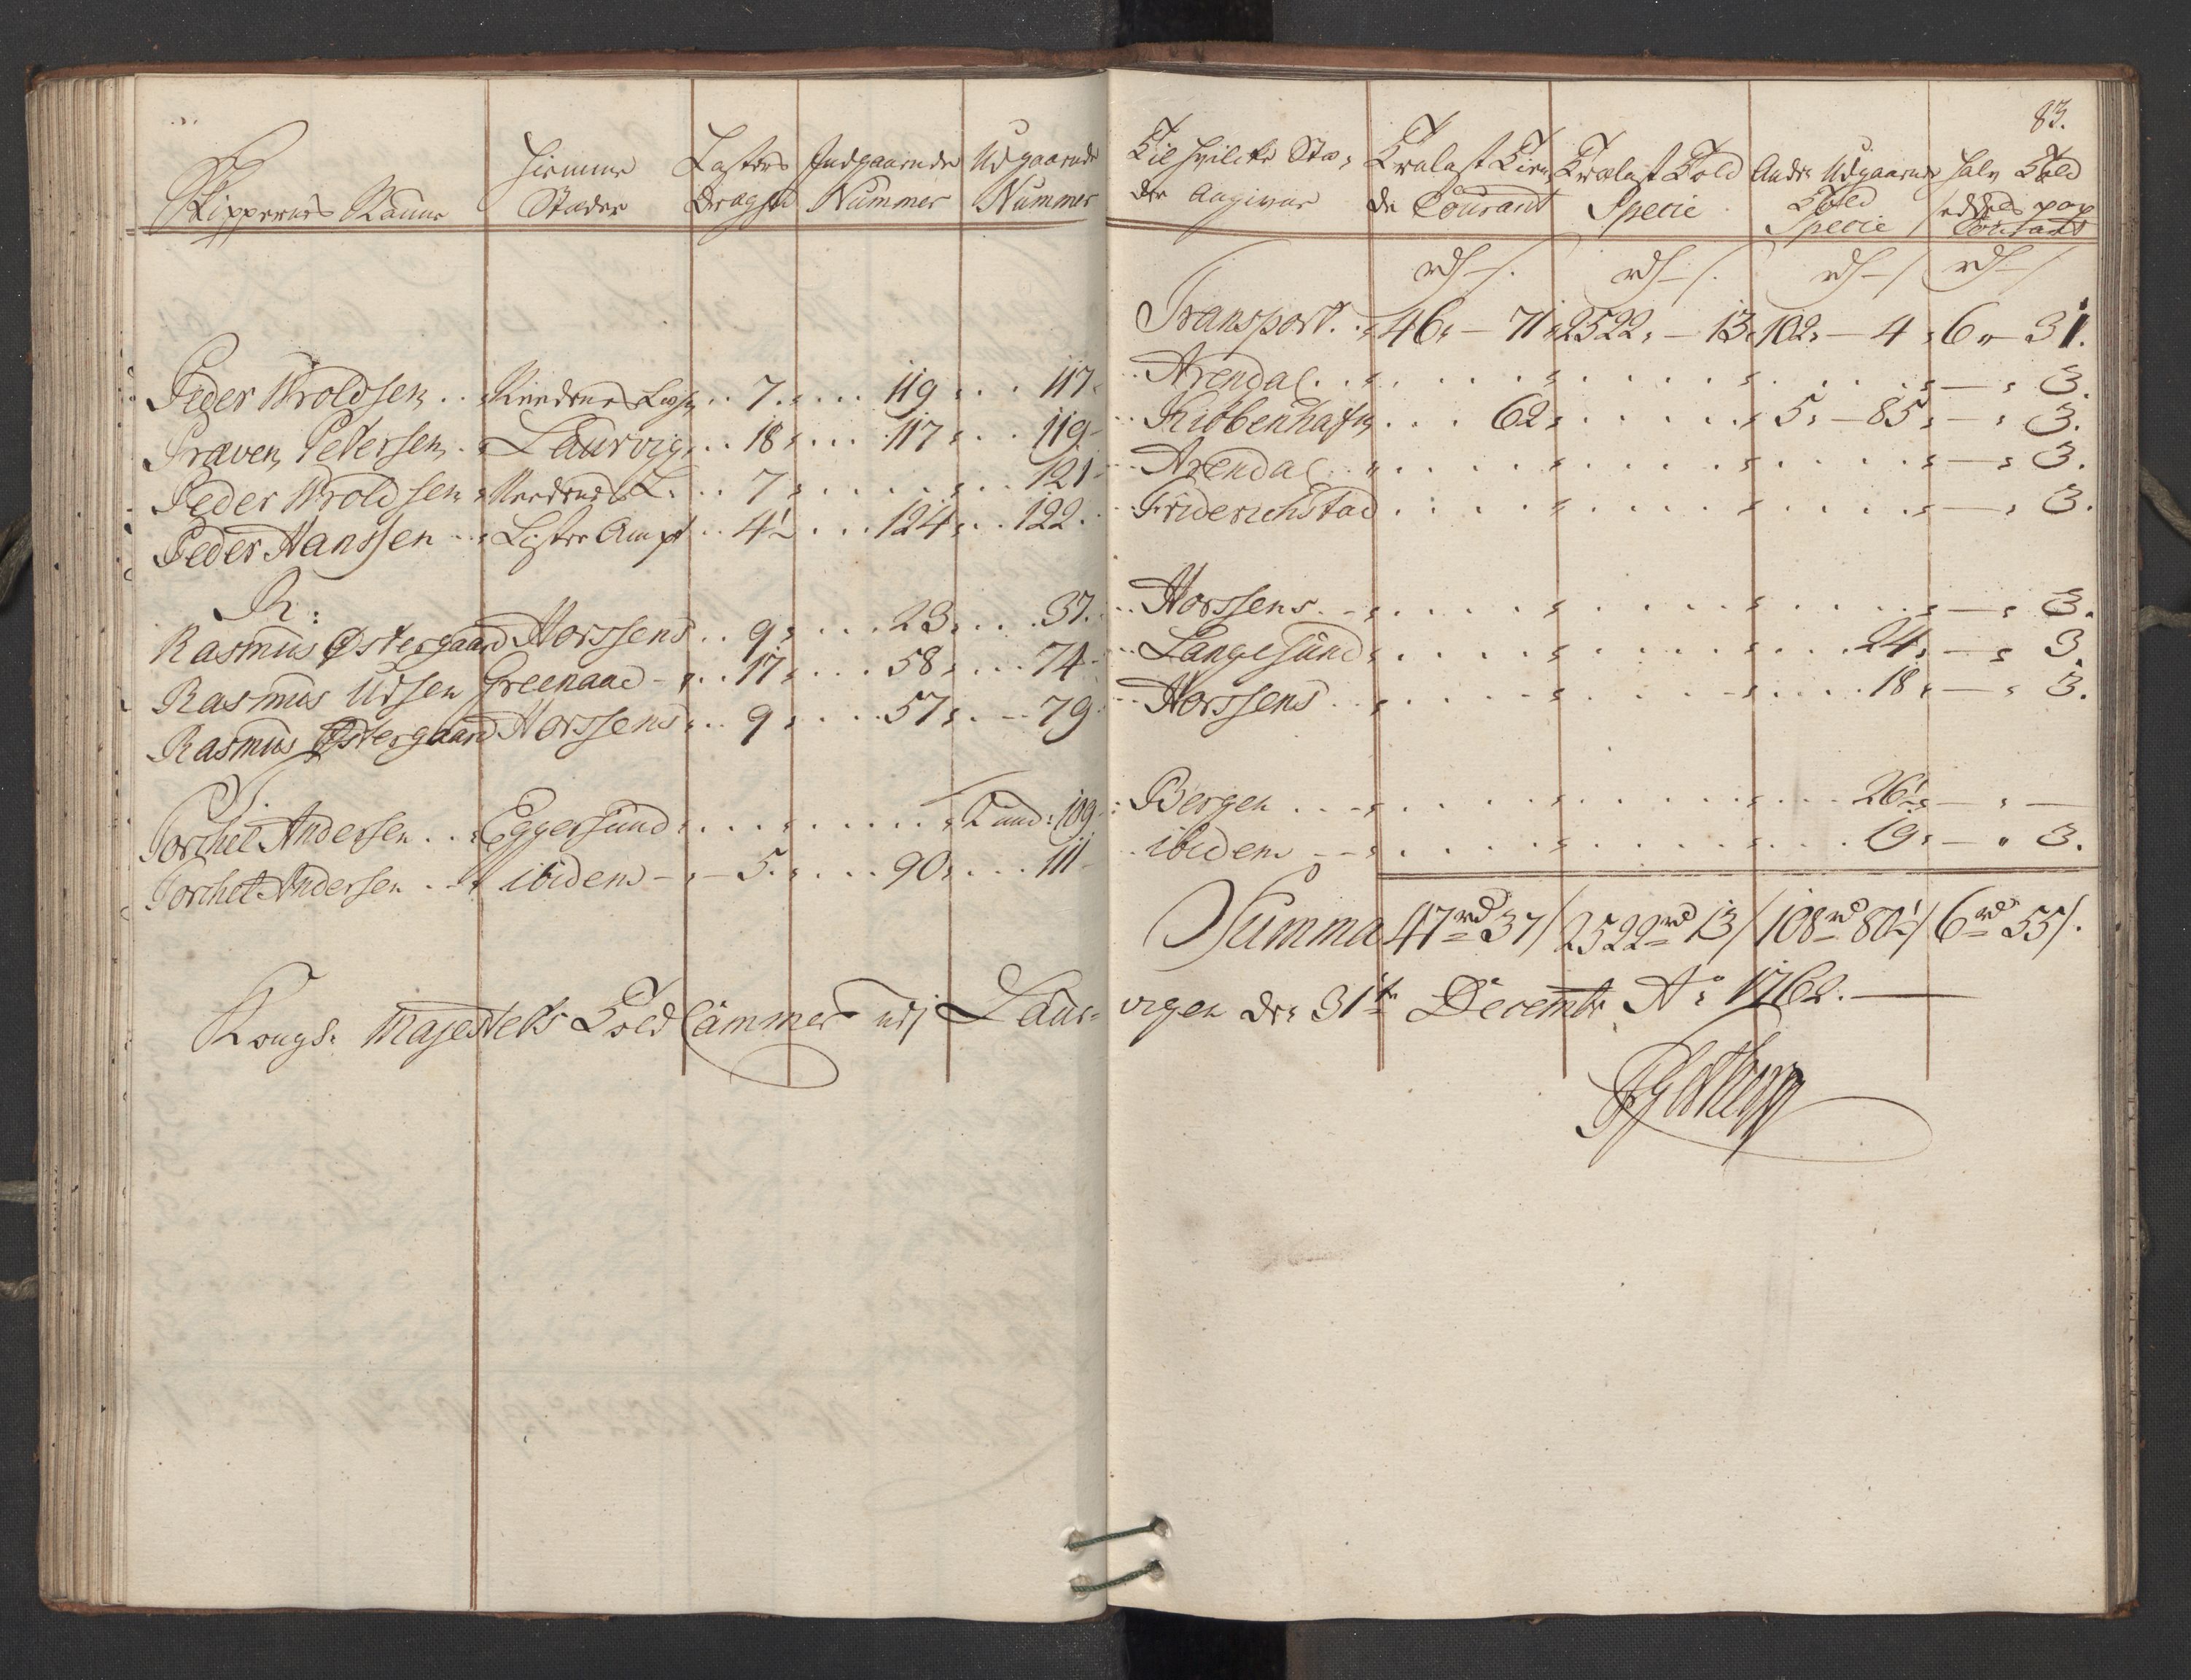 83.
Skippernes Naune
Hiemme Stæder
Læsters Drægt
Indgaaende Nummer
Udgaaende Nummer
Til hvilcke Stæ-
der Angivne
Trælast Tien
de Courant
Trælast Told
Specie
Andre Udgaaende
Told
Specie
halv Told
Courant
rd ʃ. rd ʃ. rd ʃ rd ʃ
Transport. 46 – 71 2522 – 13 102 – 4 6 – 31.
Peder Wroldsen 7 119 117 Arendal – 3.
Præven Petersen Laurvig 18 117 119 Kibbenhafn 62 5 – 85 – 3.
Peder Wroldsen 7 121 Arendal – 3.
Peder Hanssen Lister Ampt 4½ 124 122 Friderichstad – 3.
R:
Rasmus Østergaard Horssens 9 23 37 Horssens – 3.
Rasmus Udsen Greenaae 17 58 74 Langesund 24 – 3.
Rasmus Østergaard Horssens 9 57 79 Horssens 18 – 3.
T.
Torchel Andersen Eggersund 109 Bergen 26½ – –
Torchel Andersen ibidem 5 90 111 ibidem 19 – 3.
Summa 47 rd 37 ʃ 2522 rd 13 ʃ 108 rd 80½ ʃ 6 rd 55 ʃ.
Kongl: Majestets Told Cammer udj Laur-
vigen den 31te Decembr Ao 1762.